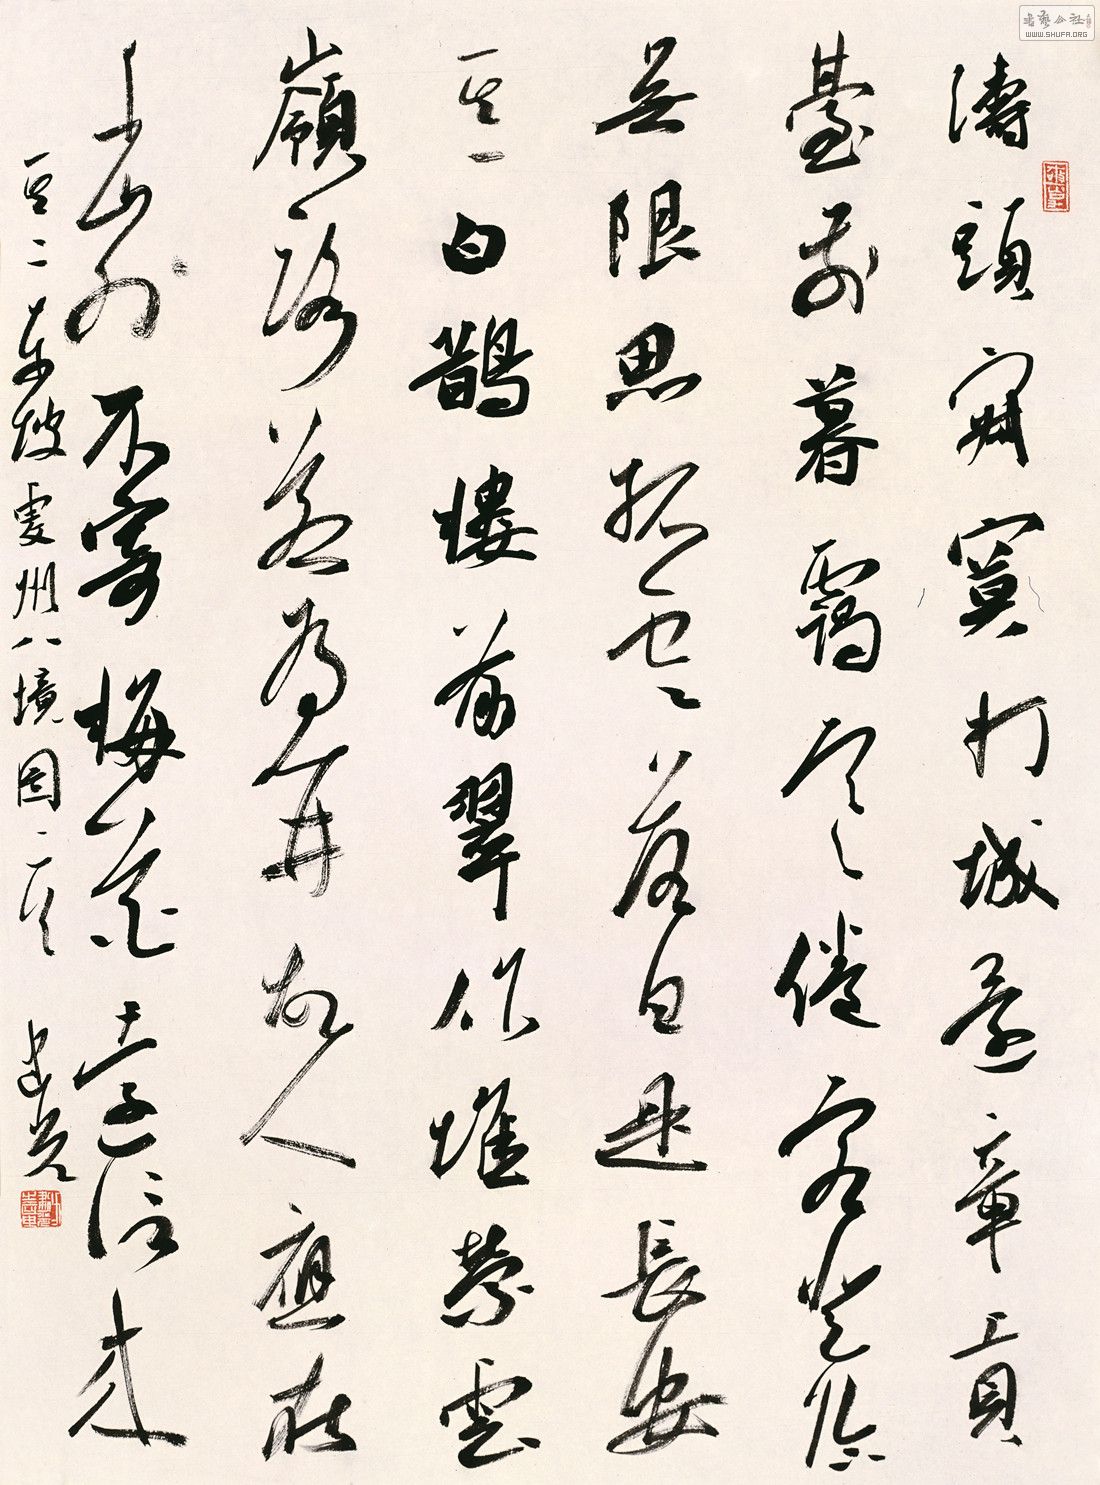 濤頭寂寞打城還章貢
臺前暮靄寒倦客登臨
無限思孤雲落日是長安
其一 白鵲樓前翠作堆縈雲
嶺路若為開故人應在
千山外不寄梅花遠信來
其二 東坡虔州八境圖
書藝公社
WWW.SHUFA.ORG